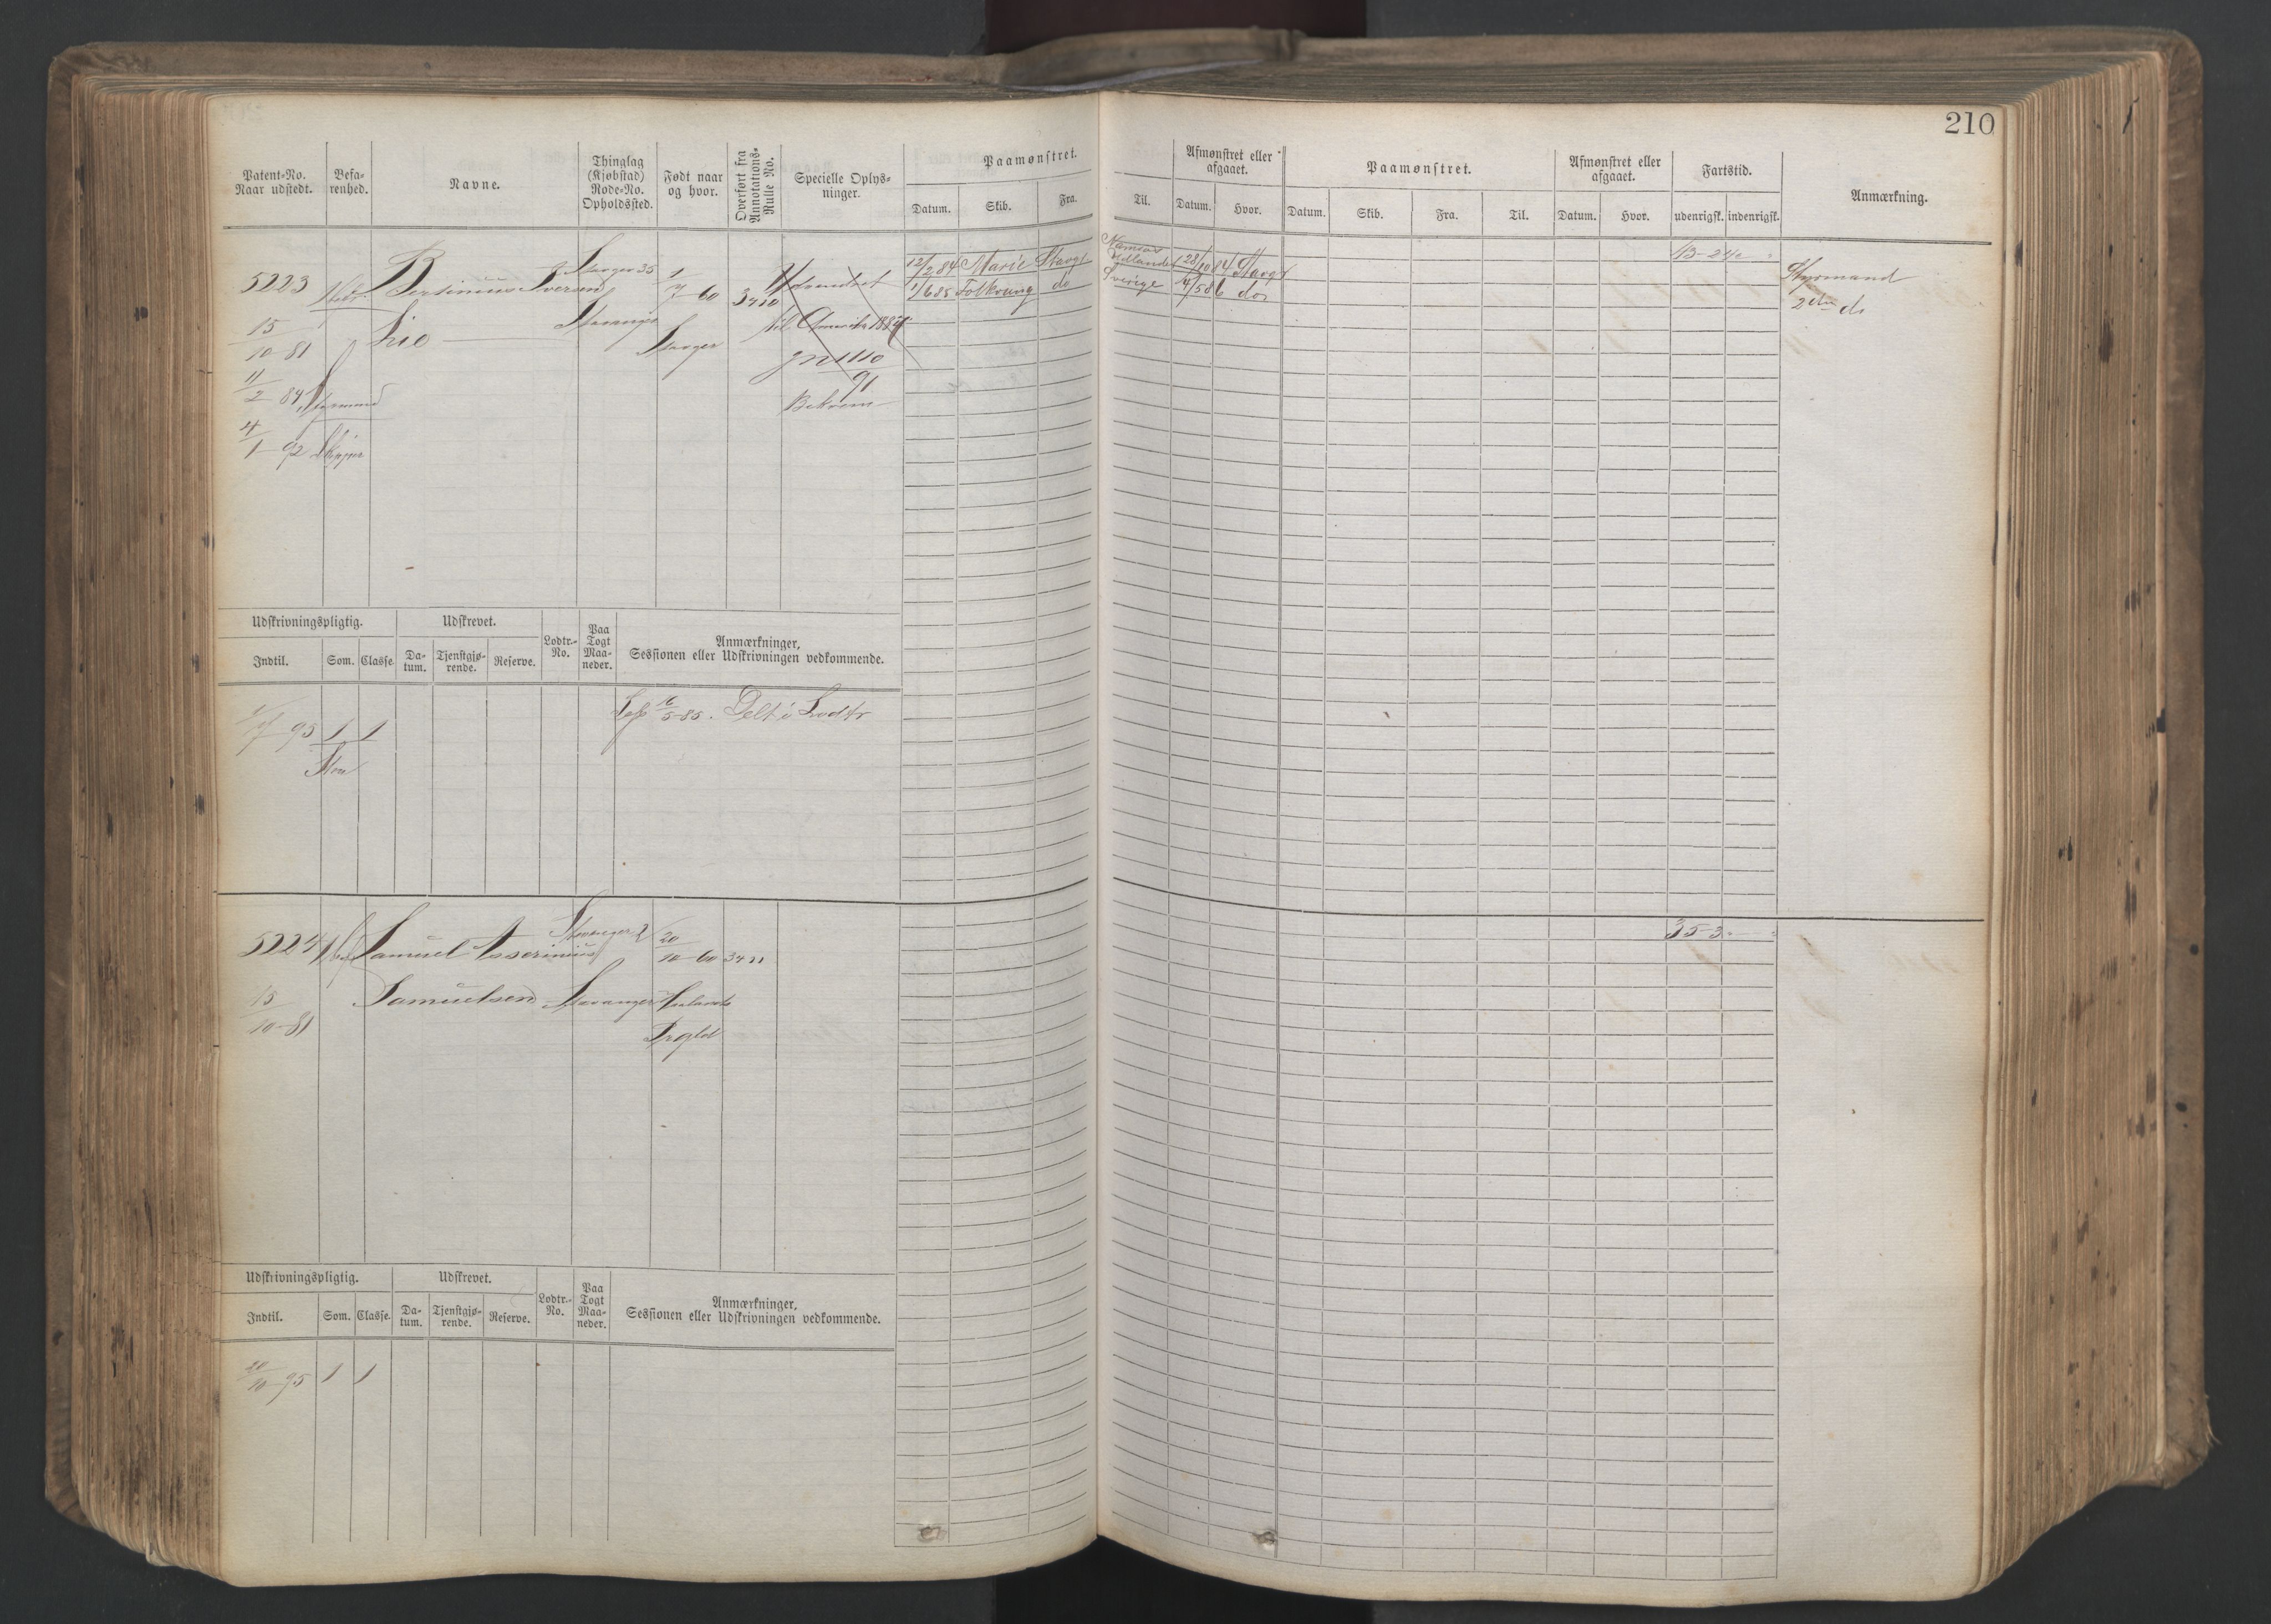 210
Patent-No. Naar udstedt.
Befa-renhed.
Navne.
Thinglag (Kjøbstad) Rode-No. Opholdssted.
Født naar og hvor.
Overført fra Annotations-Rulle No.
Specielle Oplys-ninger.
Paamønstret.
Datum. Skib. Fra. Til.
Afmønstret eller afgaaet.
Datum. Hvor.
Paamønstret.
Datum. Skib. Fra. Til.
Afmønstret eller afgaaet.
Datum. Hvor.
Fartstid.
udenrigsk. indenrigsk.
Anmærkning.
5223
15/10 81
11/2 84 Styrmand
4/1 92 Skipper
Bertinius Iversen
Lie
Stavger 35
Stavanger
1/7 60
Stavger
3410
Udvandret
til Amerika 1887
91
Bekvem
12/2 84 Marie Stavgr
1/6 85 Folkvang do
Namsos
Udlandet 28/10 84 Stavgr
Sverige 4/5 86 do
13-24
Styrmand
2den do
Udskrivningspligtig.
Indtil. Som. Classe.
Udskrevet.
Da-tum. Tjenstgjø-rende. Reserve.
Lodtr.-No.
Paa Togt Maa-neder.
Anmærkninger,
Sessionen eller Udskrivningen vedkommende.
95 1 1
Sess 16/5-85. Delt i Lodtr
5224
15/10-81
Samuel Asserinius
Samuelsen
Stavanger 2
Stavanger
20/10 60
3411
35-3
Udskrivningspligtig.
Indtil. Som. Classe.
Udskrevet.
Da-tum. Tjenstgjø-rende. Reserve.
Lodtr.-No.
Paa Togt Maa-neder.
Anmærkninger,
Sessionen eller Udskrivningen vedkommende.
20/10 95 1 1